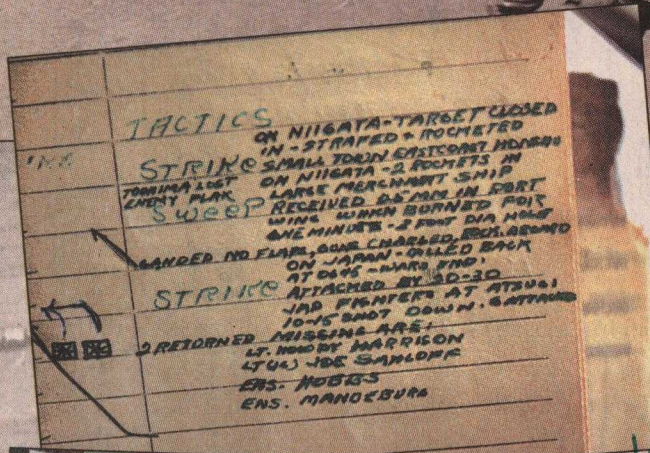 TACTICS
ON NIIGATA-TARGET CLOSED
IN-STRAFED & ROCKETED
SMALL TOWN EASTCOAST HONSHU
STRIKE ON NIIGATA-2 ROCKETS IN
LARGE MERCHANT SHIP
LOST
ENEMY FLAK
SWEEP RECEIVED MM IN PORT
WING WHICH BURNED FOR
ONE MINUTE-2 FOOT DIA HOLE
LANDED NO FLAPS, GUNS CHARGED, ABOARD
STRIKE ON JAPAN-CALLED BACK
AT 0645-WARS END.
ATTACKED BY 20-30
JAP FIGHTERS AT ATSUGI
10-15 SHOT DOWN. 6 ATTACKED
2 RETURNED MISSING ARE:
LT. HARRISON
LT(JG) JOE SAHLOFF
ENS. HOBBS
ENS. MANDEBURG